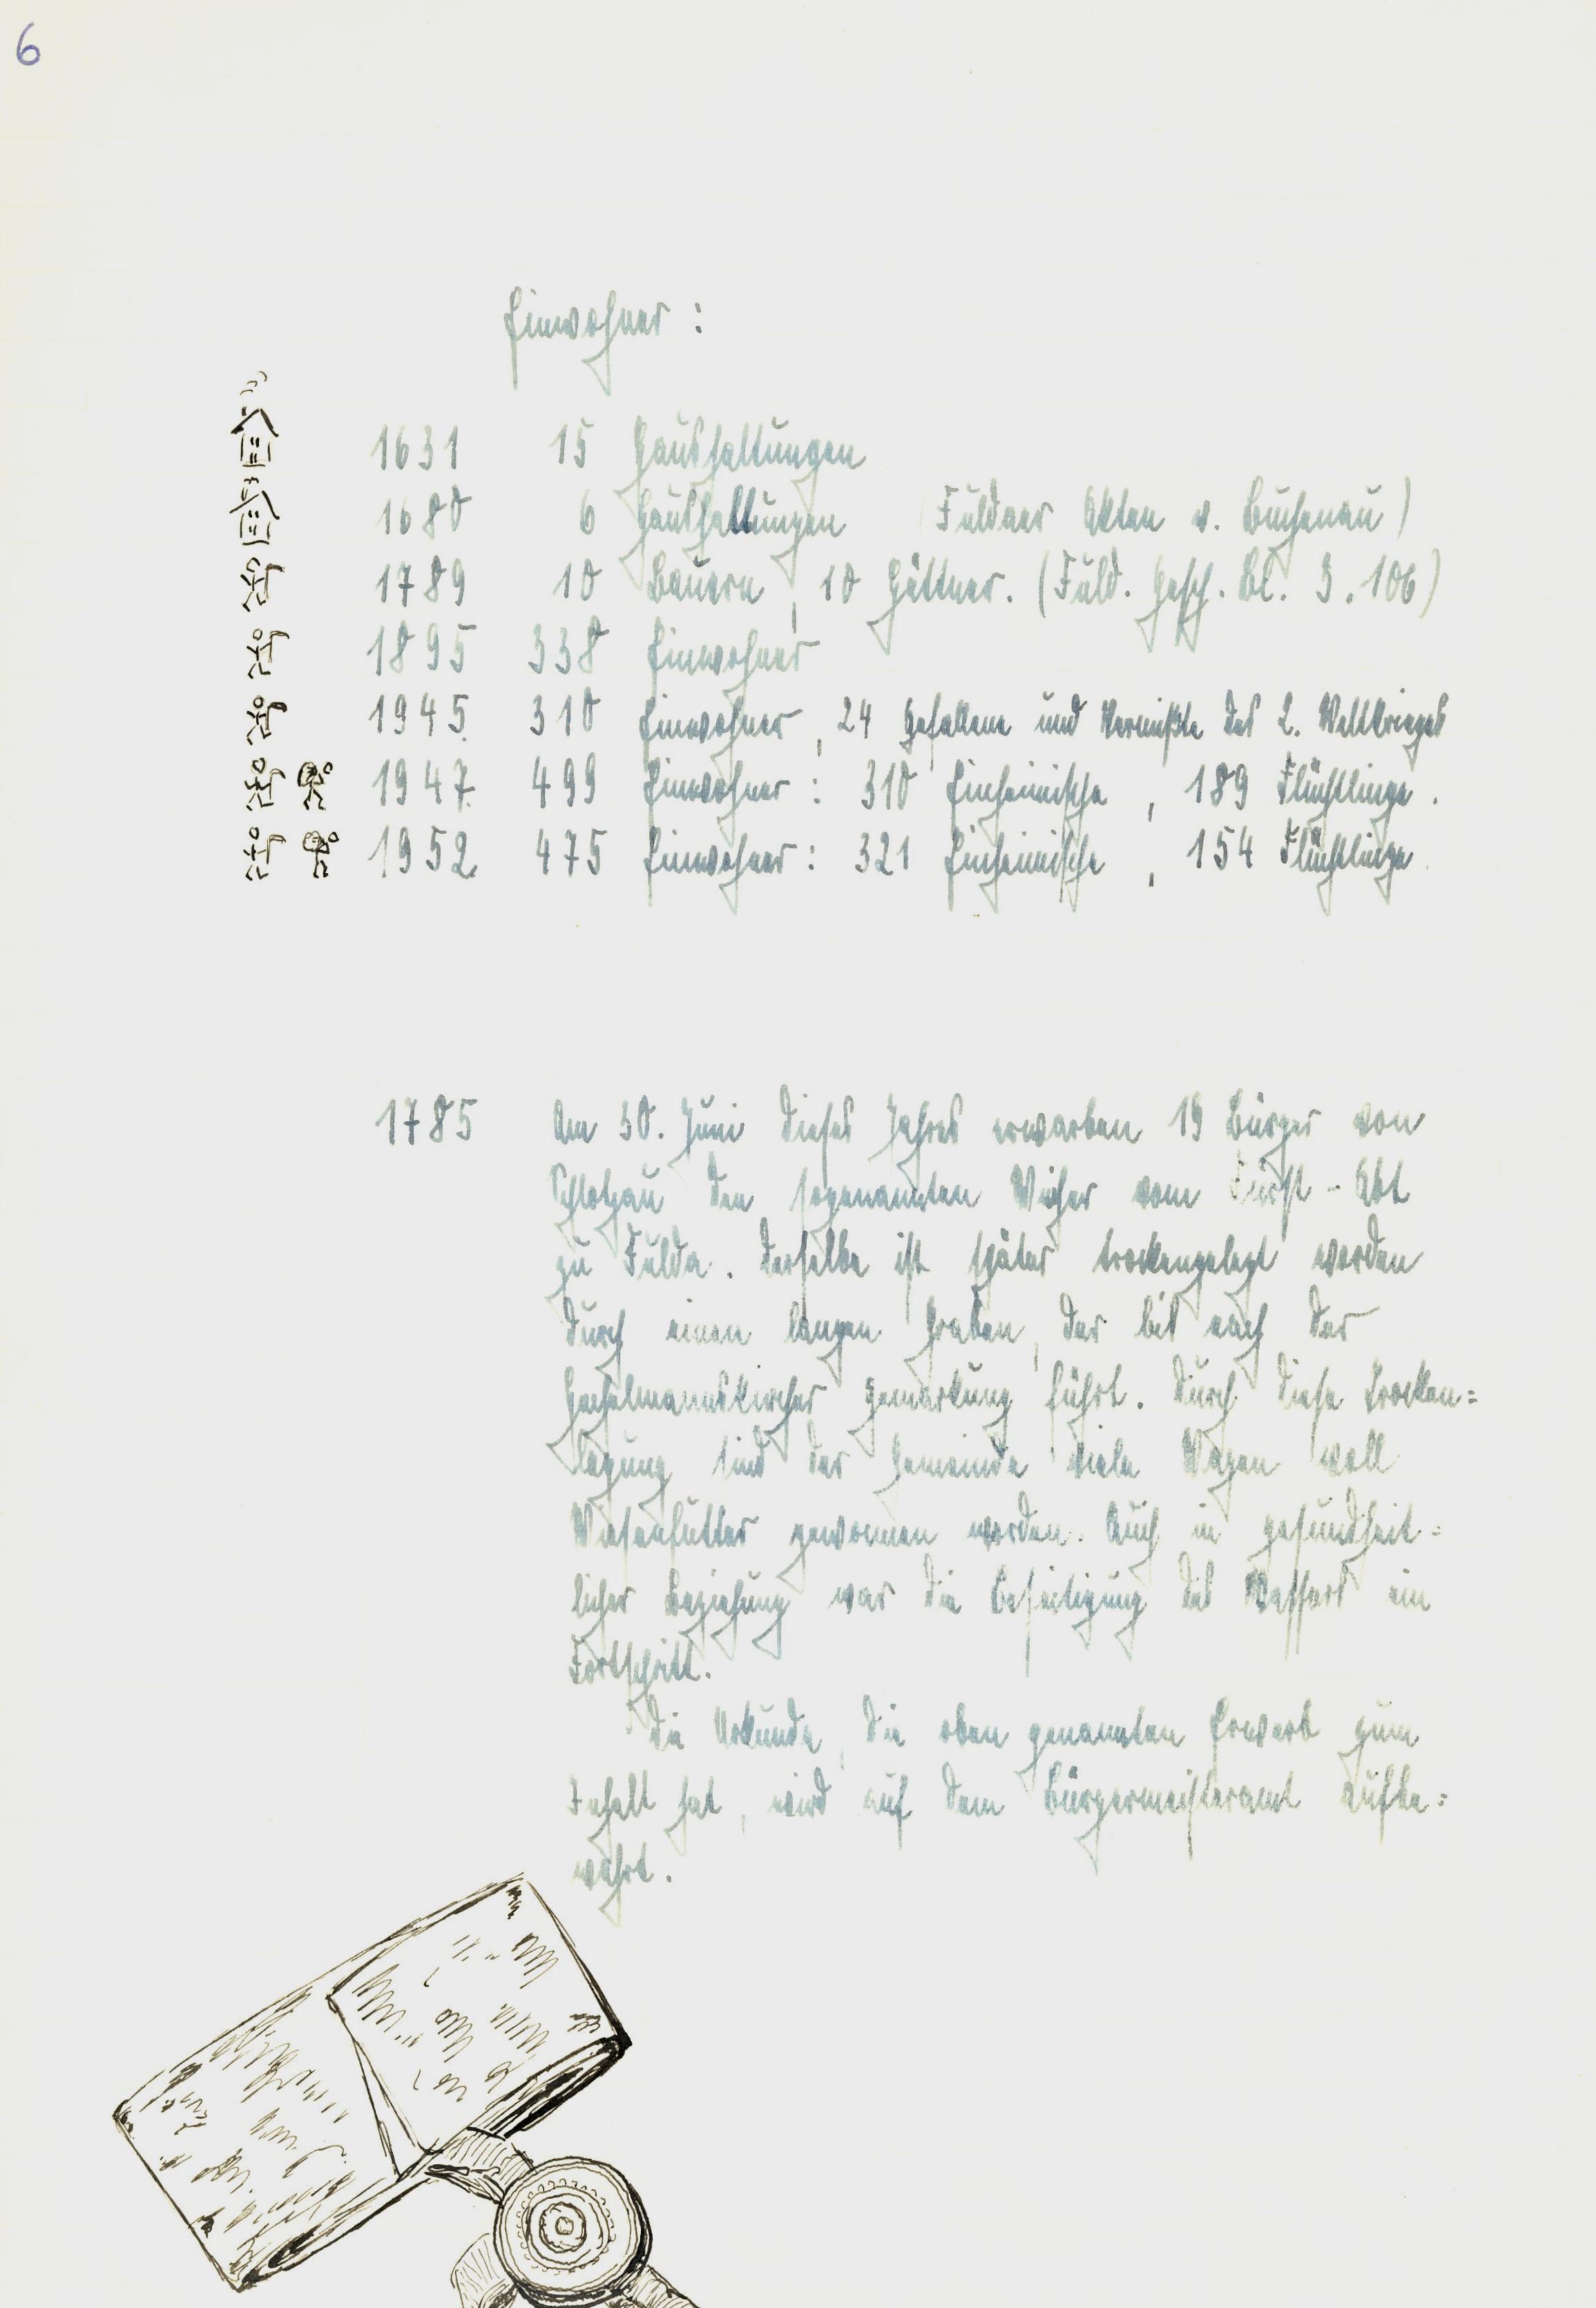 6
Einwohner :
1631 15 Haushaltungen
1680 6 Haushaltungen (Fuldaer Akten v. Buchenau)
1789 10 Bauern, 10 Hüttner. (Fuld. Gesch. Bl. 3. 106)
1895 338 Einwohner
1945 310 Einwohner, 24 Gefallene und Vermißte des 2. Weltkrieges
1947 499 Einwohner : 310 Einheimische, 189 Flüchtlinge.
1952 475 Einwohner : 321 Einheimische, 154 Flüchtlinge.
1785 Am 30. Juni dieses Jahres erwarben 19 Bürger von
Schlotzau den sogenannten Weiher vom Fürst-Abt
zu Fulda. Derselbe ist später trockengelegt worden
durch einen langen Graben, der bis nach der
Hechelmannskircher Gemarkung führt. Durch diese Trocken=
legung sind der Gemeinde viele Wagen voll
Wiesenfutter gewonnen worden. Auch in gesundheit=
licher Beziehung war die Beseitigung des Wassers ein
Fortschritt.
Die Urkunde, die oben genannten Erwerb zum
Inhalt hat, wird auf dem Bürgermeisteramt aufbe=
wahrt.